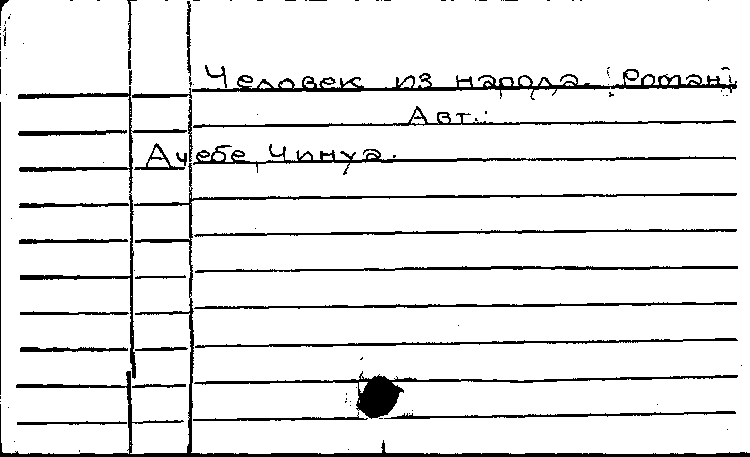 Человек из народа. [Роман].
Авт.:
Ачебе, Чинуа.